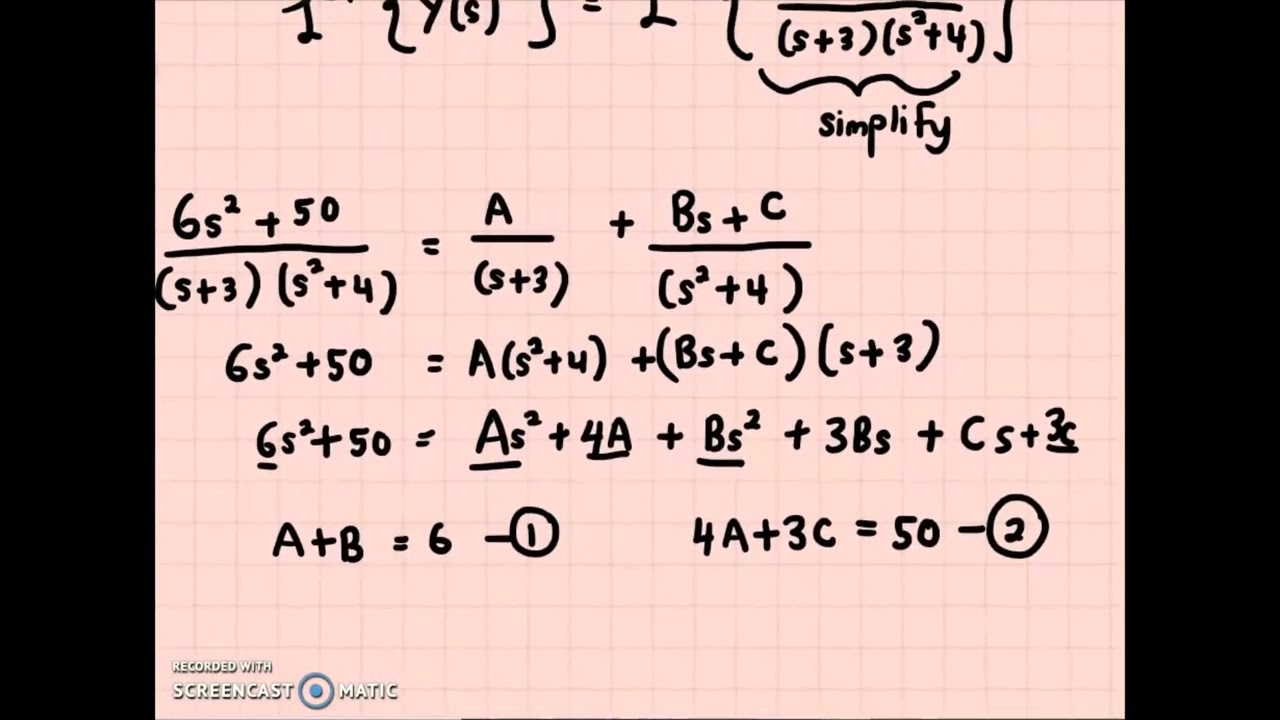 L⁻¹ {Y(s)} = L⁻¹ { (s+3)(s²+4) }
simplify
6s² + 50 / (s+3)(s²+4) = A / (s+3) + Bs + C / (s²+4)
6s² + 50 = A(s²+4) + (Bs + C)(s+3)
6s² + 50 = As² + 4A + Bs² + 3Bs + Cs + 3C
A+B = 6 — ① 4A+3C = 50 — ②
RECORDED WITH
SCREENCAST MATIC